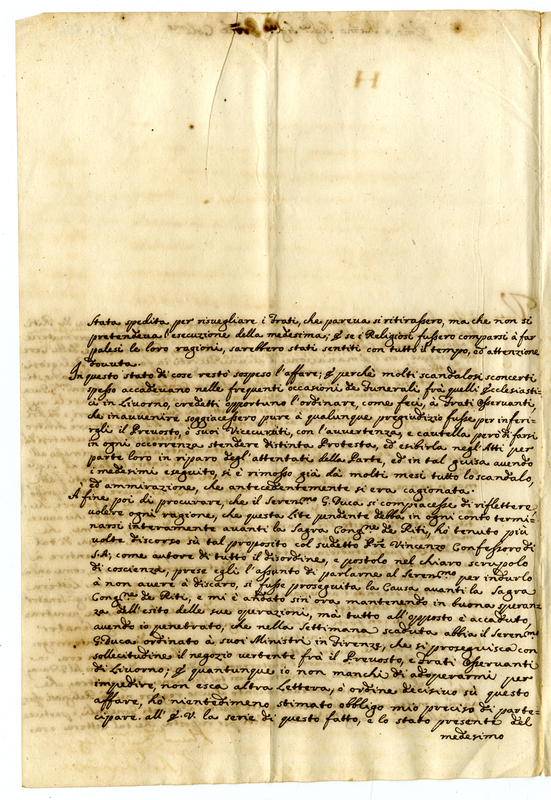 stata spedita per risvegliare i Frati, che pareva si ritirassero, ma che non si
pretendeva l'esecuzione della medesima; e se i Religiosi fussero comparsi à far
palesi le loro ragioni, sarebbero stati sentiti con tutto il tempo, ed attenzione
dovuta.
In questo stato di cose restò sospeso l'affare; e perche molti scandalosi sconcerti
spesso accadevano nelle frequenti occasioni de Funerali frà quelli Ecclesiasti-
ci in Livorno, credetti opportuno l'ordinare, come feci, à Frati Osservanti,
che inauvenire soggiacessero pure à qualunque pregiudizio fusse per inferi-
rgli il Prevosto, ò suoi Vicecurati, con l'avvertenza, e cautella però di farsi
in ogni occorrenza stendere distinta Protesta, ed esibirla negl'Atti per
parte loro in riparo degl'attentati della Parte, ed in tal guisa avendo
i medesimi eseguito, si è rimosso già da molti mesi tutto lo scandalo,
ed ammirazione, che antecedentemente si era cagionata.
A fine poi di procurare, che il Seren.mo G. Duca si compiacesse di riflettere,
volere ogni ragione, che questa lite pendente debba in ogni conto termi-
narsi interamente avanti la Sagra Cong.ne de Riti, hò tenuto più
volte discorso sù tal proposito col sudetto P.re Vincenzo Confessoro di
S. A; come autore di tutto il disordine, e postolo nel chiaro scrupolo
di coscienza, prese egli l'assunto di parlarne al Seren.mo per indurlo
à non avere à discaro, si fusse proseguita la Causa avanti la Sagra
Cong.ne de Riti, e mi è andato sin'ora mantenendo in buona speran-
za dell'esito delle sue operazioni, mà tutto all'opposto è accaduto,
avendo io penetrato, che nella Settimana scaduta abbia il Seren.mo
G. Duca ordinato à suoi Ministri in Firenze, che si proseguisca con
sollecitudine il negozio vertente frà il Prevosto, e Frati Osservanti
di Livorno; e quantunque io non manchi di adoperarmi per
impedire, non esca altra Lettera, ò ordine decisivo sù questo
affare, hò nientedimeno stimato obbligo mio preciso di parte-
cipare all' E. V. la serie di questo fatto, e lo stato presente del
medesimo